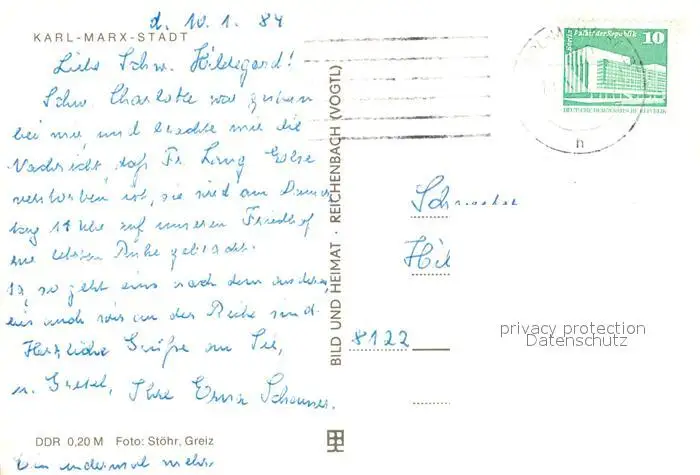 d. 10. 1. 84
KARL-MARX-STADT
Liebe Schw. Hildegard!
Schw. Charlotte war gestern
bei mir, und brachte mir die
Nachricht, daß Fr. Lang Else
verstorben ist, sie wird am Donners
tag 11 Uhr auf unserem Friedhof
zur letzten Ruhe gebracht.
Ja, so geht eins nach dem anderen,
bis auch wir an der Reihe sind.
Herzliche Grüße an Sie,
u. Gretel, Ihre Erna
DDR 0,20 M Foto: Stöhr, Greiz
Ein andermal mehr.
BILD UND HEIMAT · REICHENBACH (VOGTL)
Berlin Palast der Republik
10
DEUTSCHE DEMOKRATISCHE REPUBLIK
h
Schwester
Hil
8122
privacy protection
Datenschutz